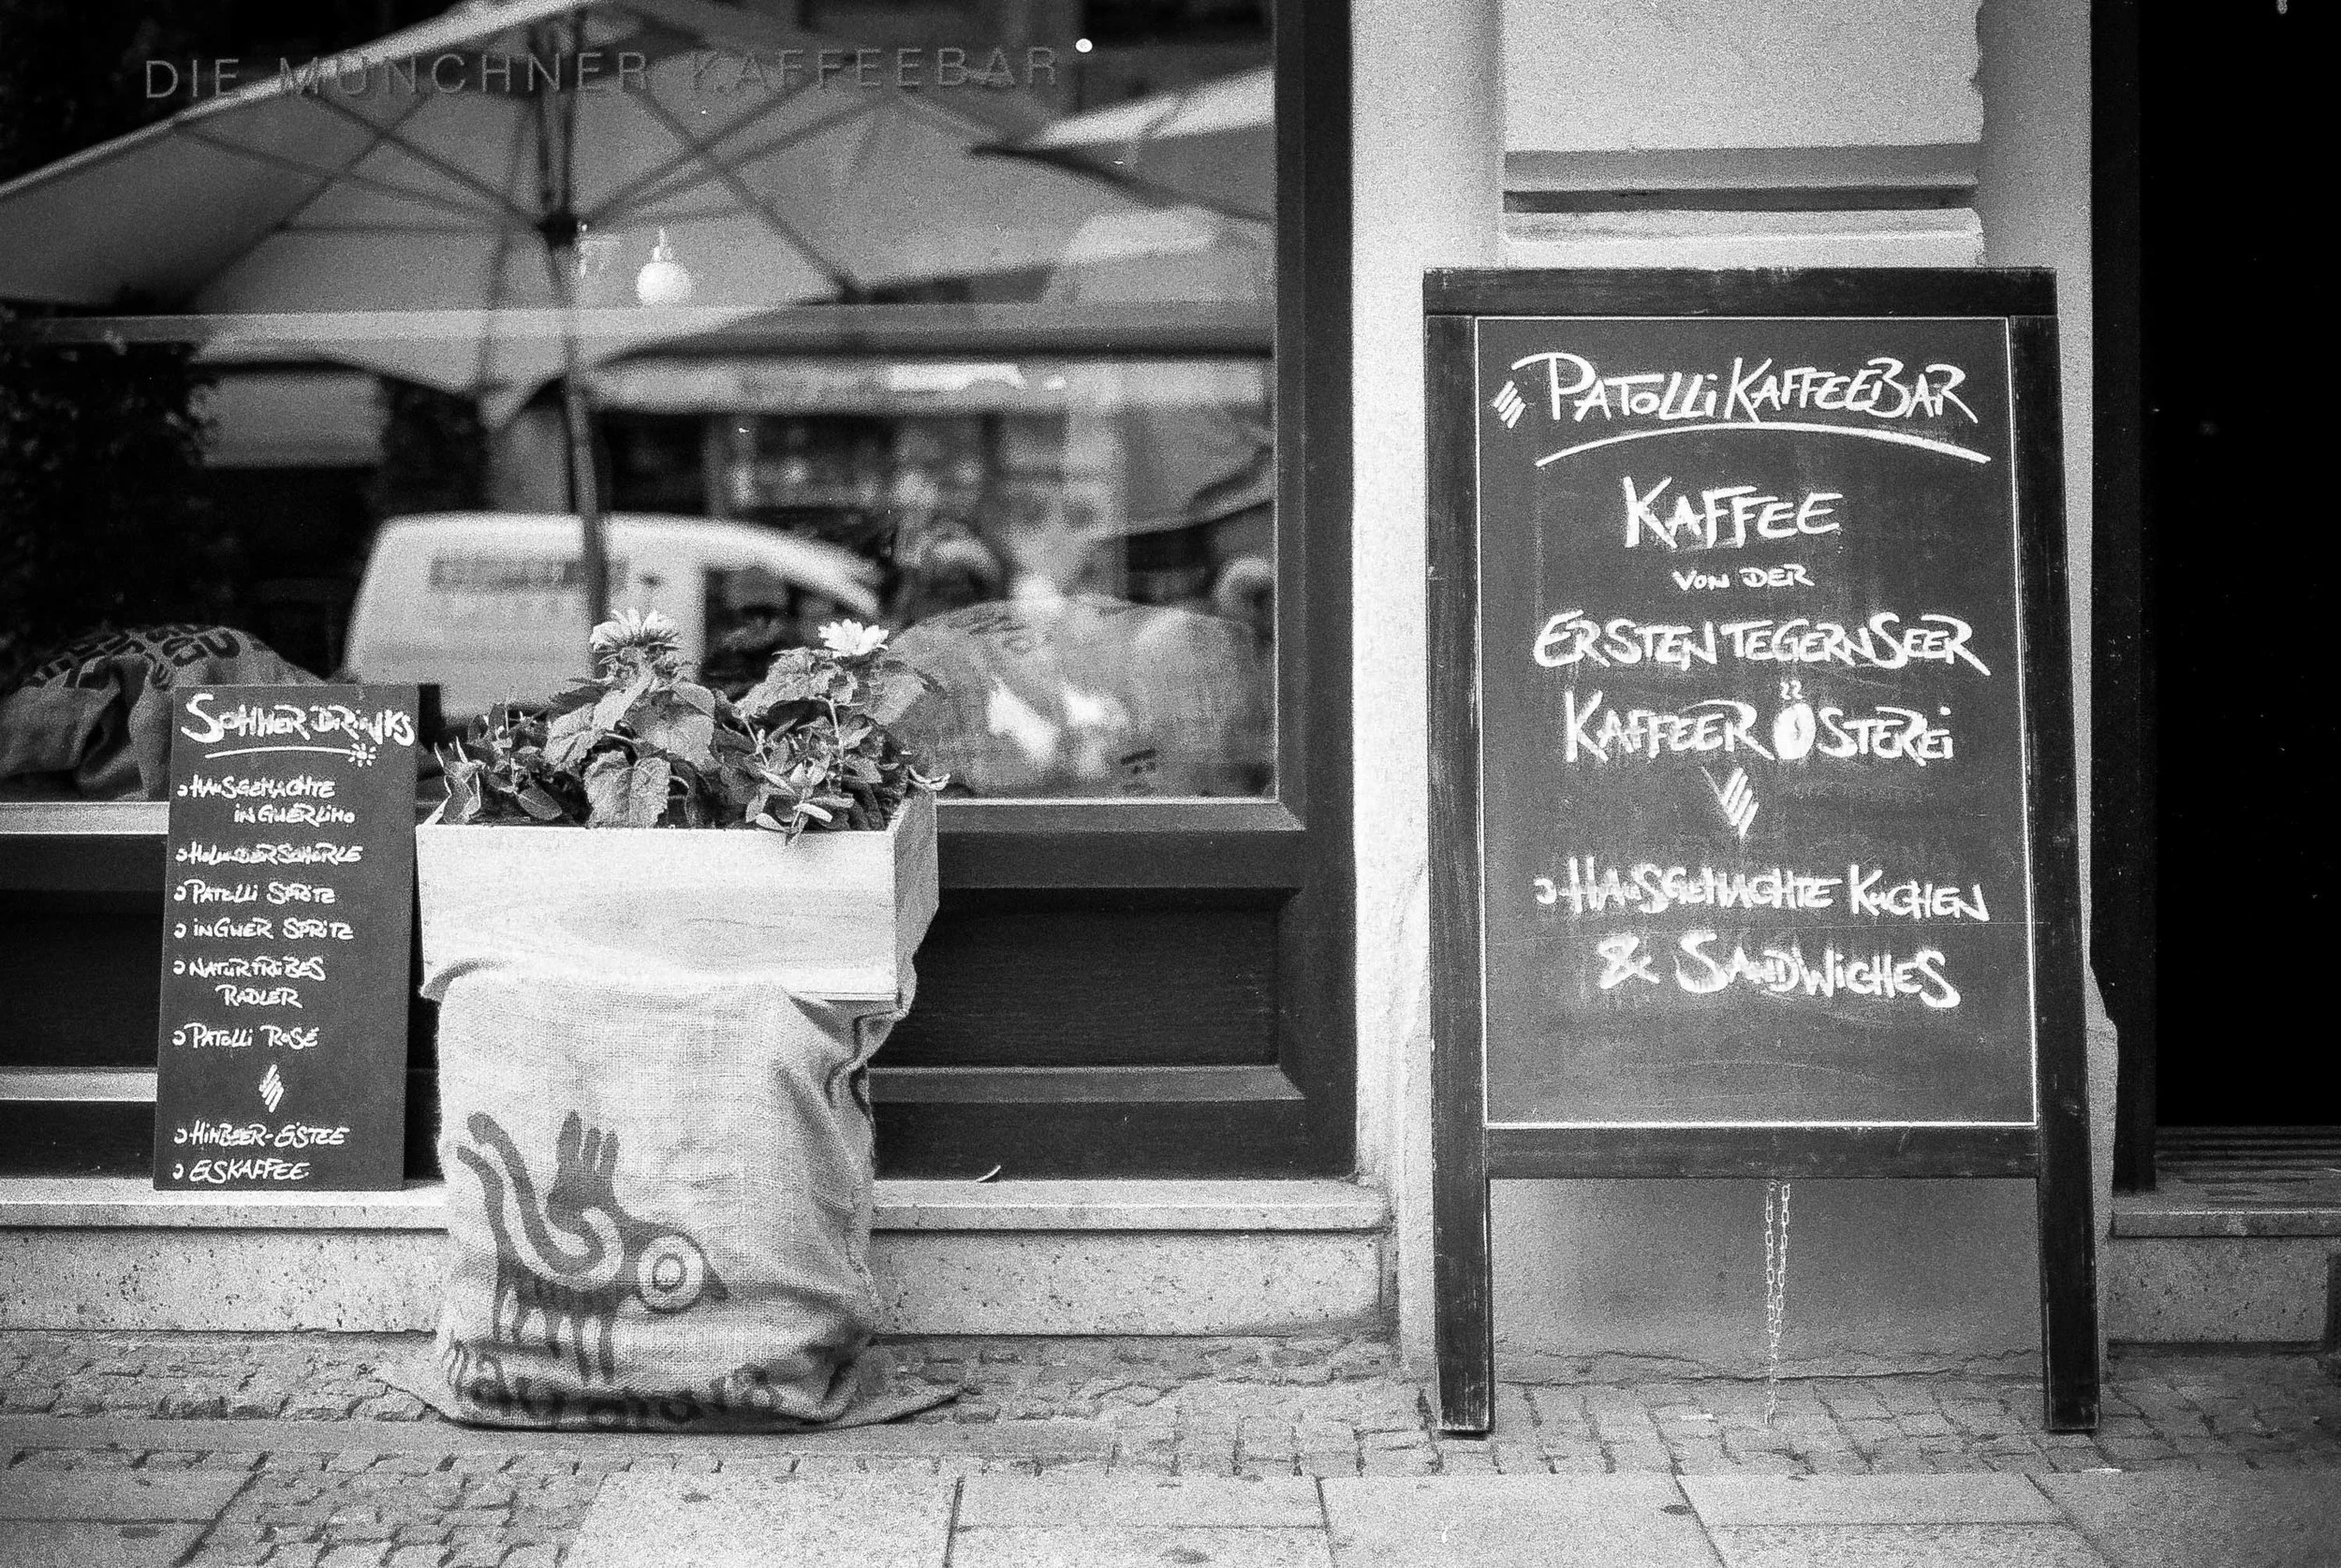 DIE MÜNCHNER KAFFEEBAR
SOMMERDRINKS
HAUSGEMACHTE
INGWERLIMO
HOLUNDERSCHORLE
PATOLLI SPRITZ
INGWER SPRITZ
NATURTRÜBES
RADLER
PATOLLI ROSÉ
HIMBEER-EISTEE
EISKAFFEE
PATOLLI KAFFEEBAR
KAFFEE
VON DER
ERSTEN TEGERNSEER
KAFFEERÖSTEREI
HAUSGEMACHTE KUCHEN
& SANDWICHES